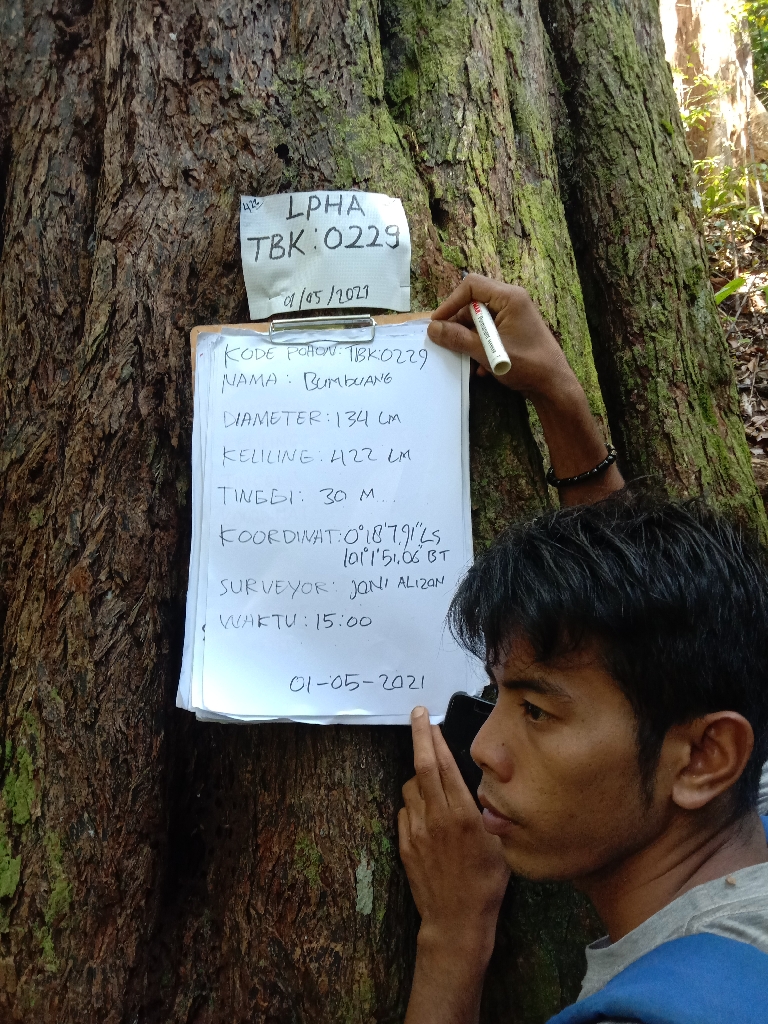 422
LPHA
TBK: 0229
01/05/2021
KODE POHON: TBK0229
NAMA: BUMBUANG
DIAMETER: 134 CM
KELILING: 422 CM
TINGGI: 30 M..
KOORDINAT: 0°18'7.91" LS
101°1'51,06" BT
SURVEYOR: JONI ALIZON
WAKTU: 15:00
01-05-2021